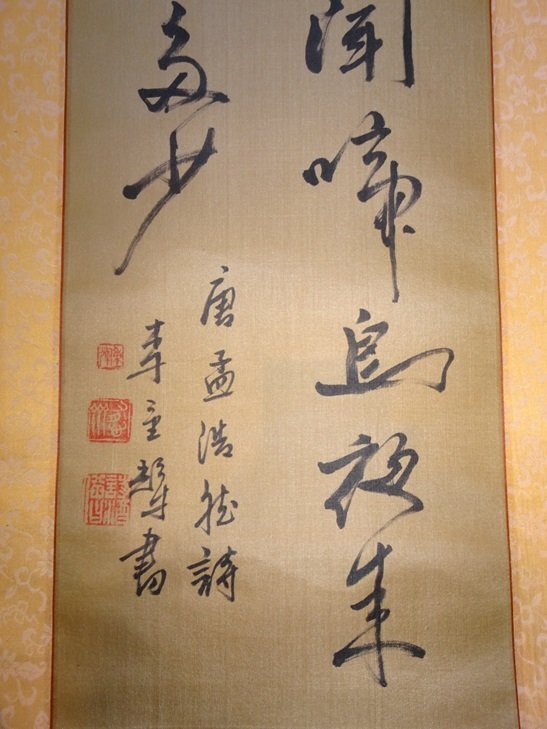 聞啼鳥夜来
多少
唐孟浩然詩
李 書